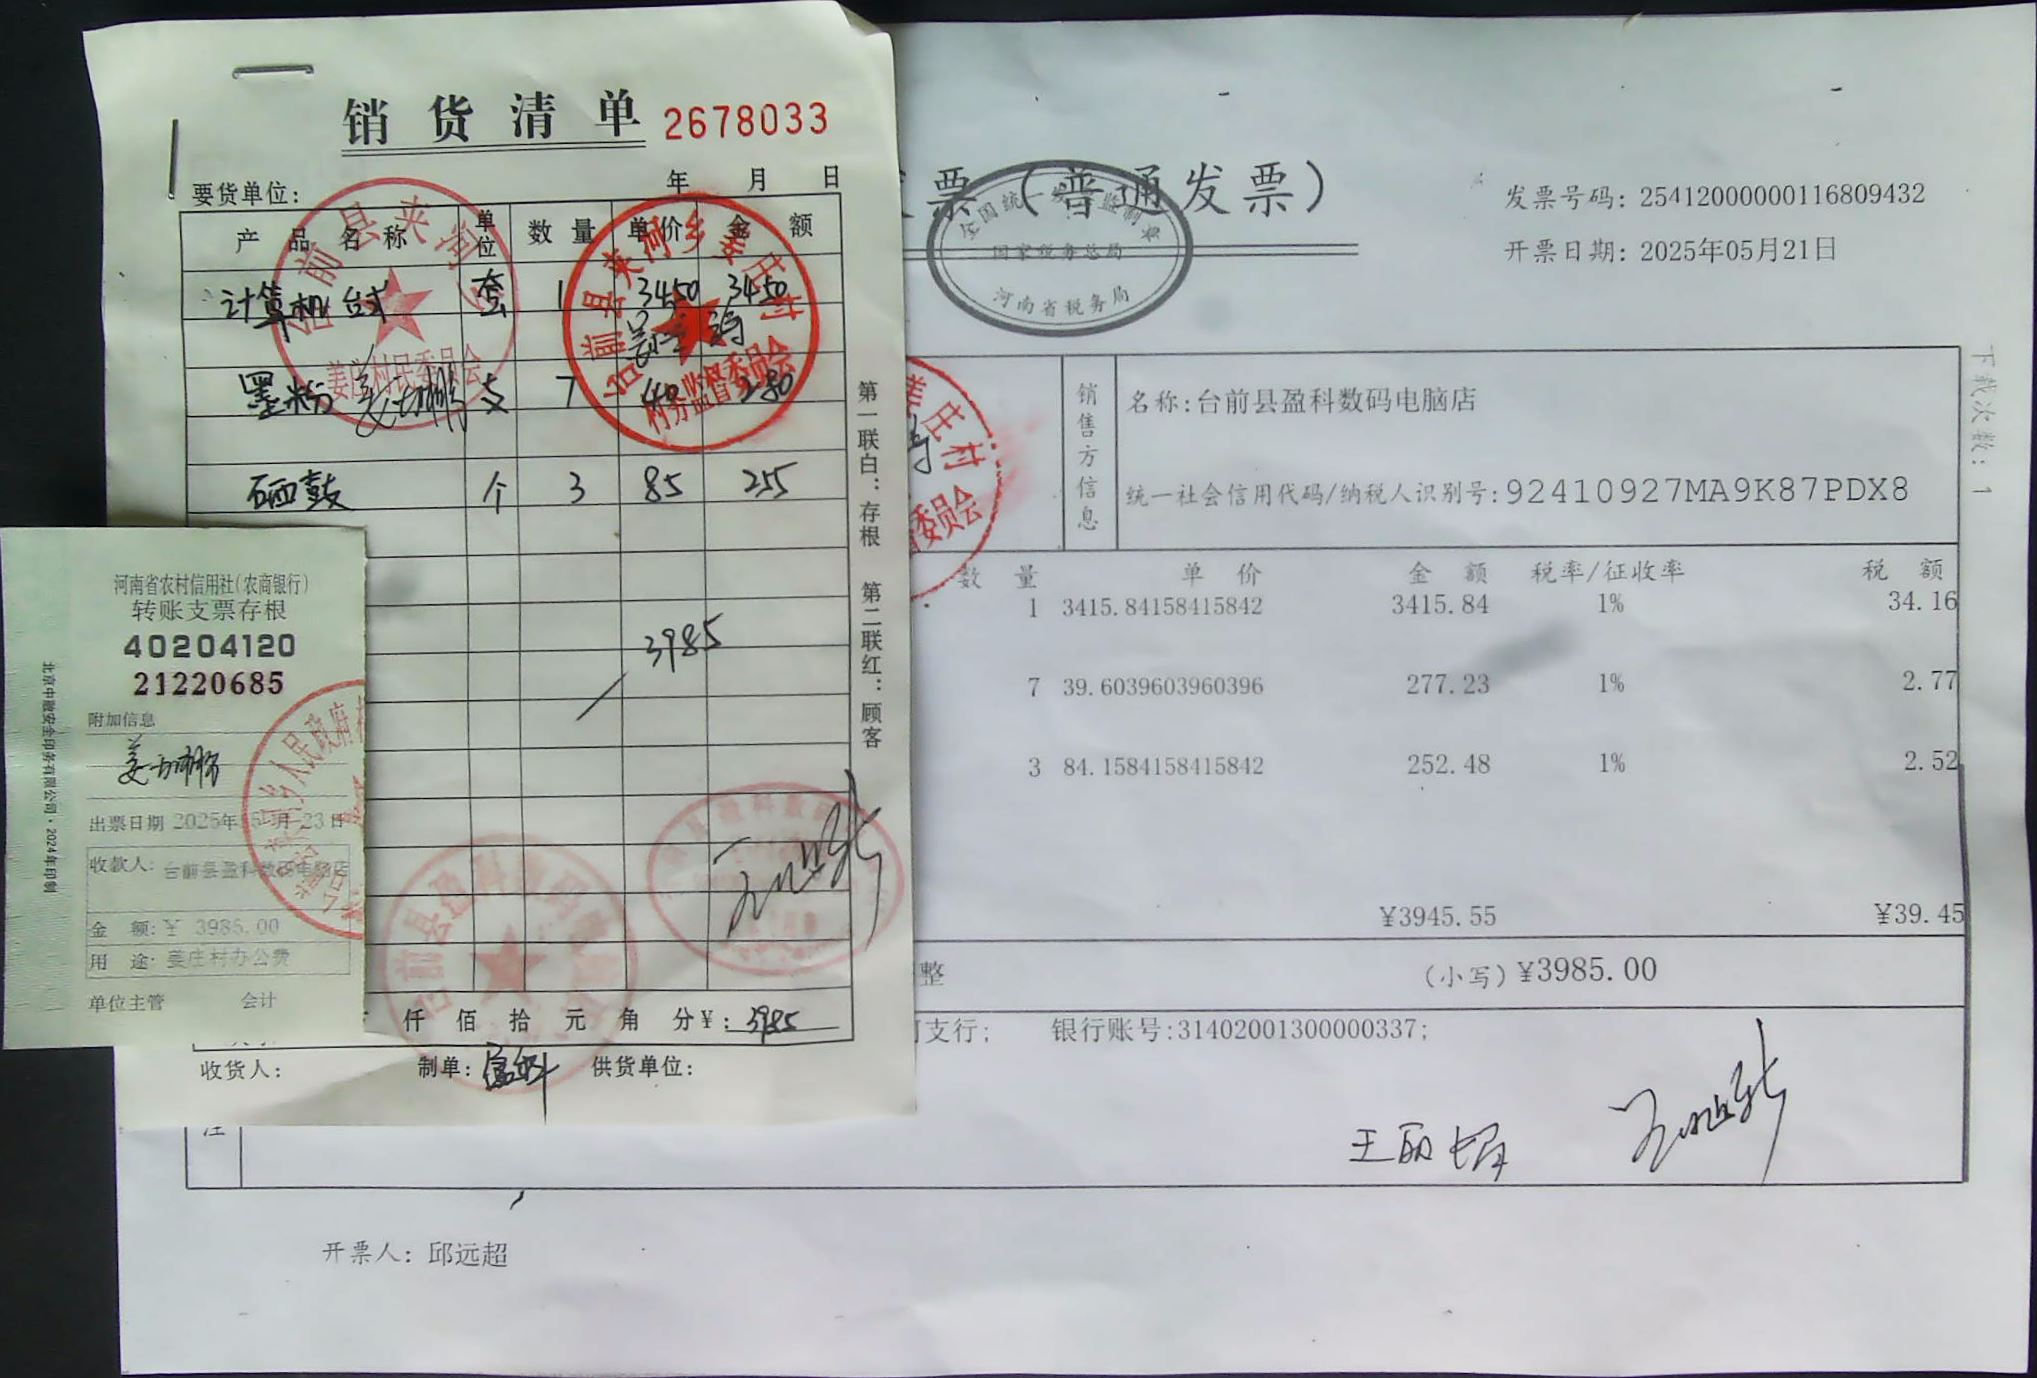 销货清单 2678033
要货单位： 年 月 日
产品名称 单位 数量 单价 金额
计算机台式 套 1 3450 3450
墨粉 支 7 40 280
硒鼓 个 3 85 255
3985
仟 佰 拾 元 角 分 ¥：3985
收货人： 制单：盈科 供货单位：
第一联白：存根 第二联红：顾客
台前县夹河乡
姜庄村民委员会
台前县夹河乡姜庄村
村务监督委员会
河南省农村信用社(农商银行)
转账支票存根
40204120
21220685
附加信息
出票日期 2025年 5 月 23 日
收款人：台前县盈科数码电脑店
金 额：¥ 3985.00
用 途：姜庄村办公费
单位主管 会计
北京中融安全印务有限公司·2024年印制
发票（普通发票）
全国统一发票监制章
国家税务总局
河南省税务局
发票号码：25412000000116809432
开票日期：2025年05月21日
下载次数：1
销售方信息
名称：台前县盈科数码电脑店
统一社会信用代码/纳税人识别号：92410927MA9K87PDX8
数 量 单 价 金 额 税率/征收率 税 额
1 3415.84158415842 3415.84 1% 34.16
7 39.6039603960396 277.23 1% 2.77
3 84.1584158415842 252.48 1% 2.52
¥3945.55 ¥39.45
整 （小写）¥3985.00
支行； 银行账号：31402001300000337；
注
开票人：邱远超